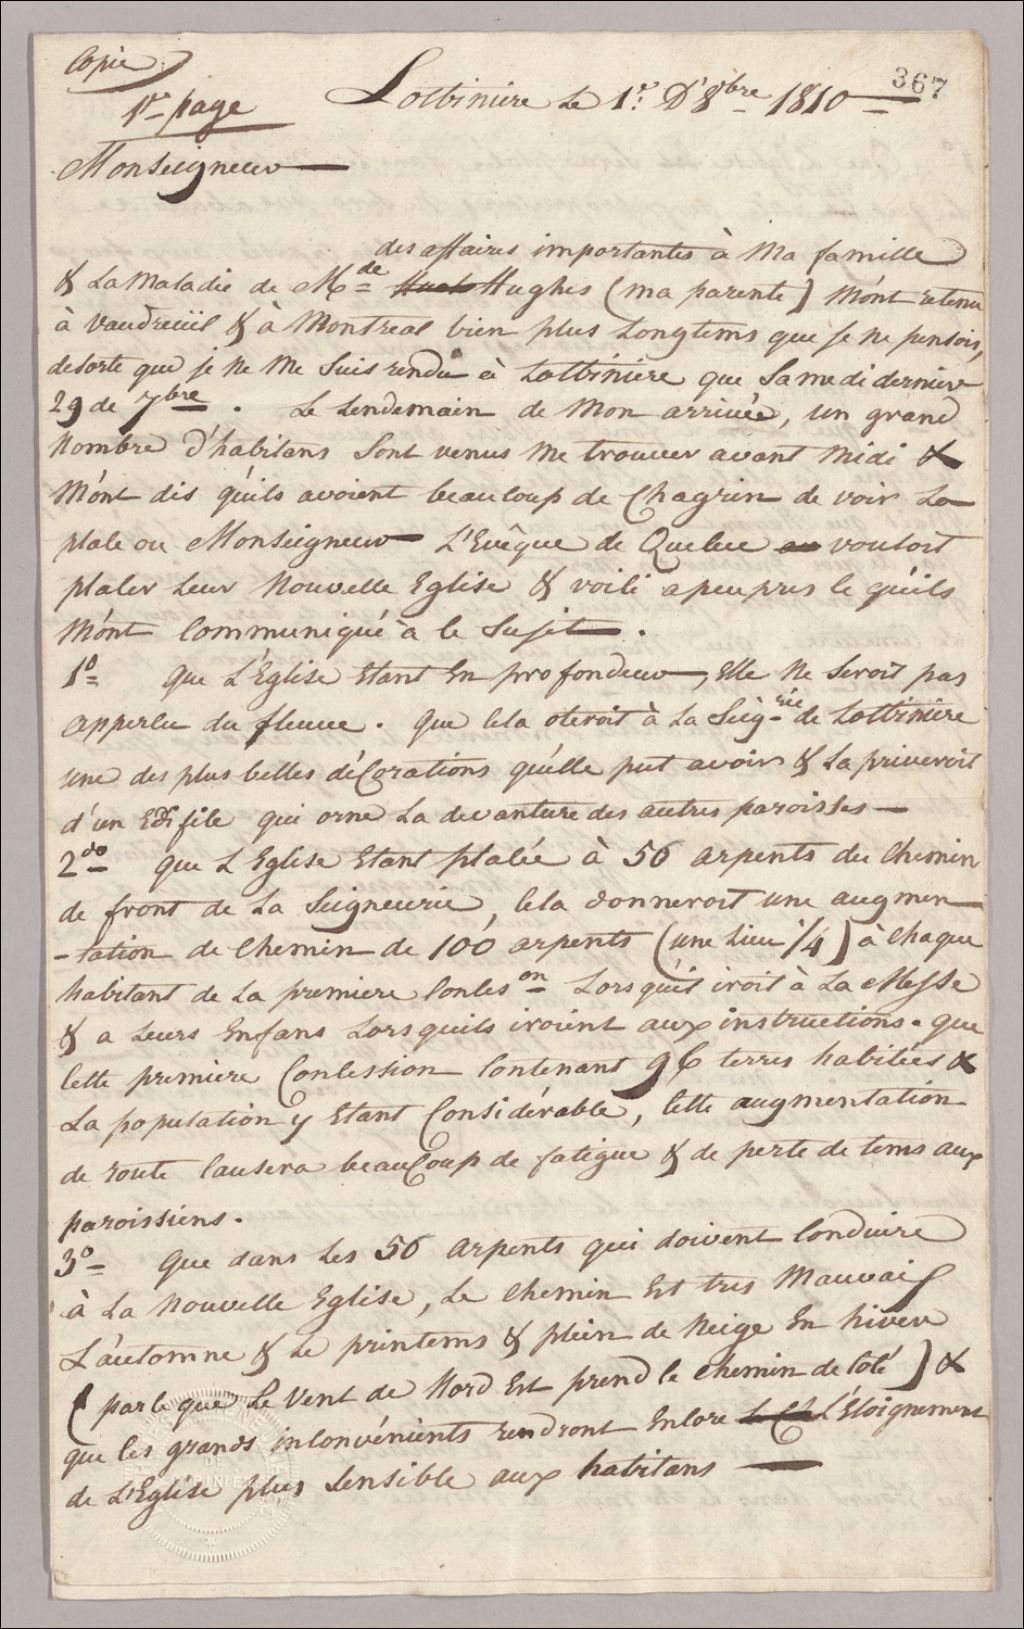 Copie
1re page
367
Lotbiniere Le 1er D'8bre 1810
Monseigneur
des affaires importantes à Ma famille
& La Maladie de Mde Hughes (ma parente) M'ont retenu
à Vaudreüil & à Montreal bien plus Longtems que je ne pensois,
desorte que je ne Me Suis rendu à Lotbiniere que Samedi dernier
29 de 7bre. Le Lendemain de Mon arrivée, un grand
Nombre d'habitans Sont venus Me trouver avant Midi &
M'ont dis qu'ils avoient beaucoup de Chagrin de voir La
place ou Monseigneur L'Evêque de Quebec vouloit
placer Leur Nouvelle Eglise & voici apeuprès ce qu'ils
M'ont Communiqué à ce Sujet.
1o Que L'Eglise Etant En profondeur, Elle Ne Seroit pas
apperçu du fleuve. Que Cela oteroit à La Seigrie de Lotbiniere
une des plus belles déCorations qu'elle put avoir & La priveroit
d'un Edifice qui orne La devanture des autres paroisses —
2do Que L'Eglise Etant placée à 50 arpents du Chemin
de front de La Seigneurie, Cela donneroit une augmen
-tation de Chemin de 100 arpents (une Lieu 1/4) à Chaque
habitant de La premiere Conceson Lorsqu'il iroit à La Messe
& a Leurs Enfans Lorsquils iroient aux instructions. Que
Cette premiere Concession Contenant 96 terres habitées &
La population y Etant Considérable, Cette augmentation
de route Causera beauCoup de fatigue & de perte de tems aux
paroissiens.
3o Que dans Les 50 arpents qui doivent Conduire
à La Nouvelle Eglise, Le Chemin Est tres Mauvais
L'automne & Le printems & plein de Neige En hiver
(parceque Le Vent de Nord Est prend le chemin de Coté) &
que les grands inConvénients rendront Encore L'Eloignement
de L'Eglise plus Sensible aux habitans —